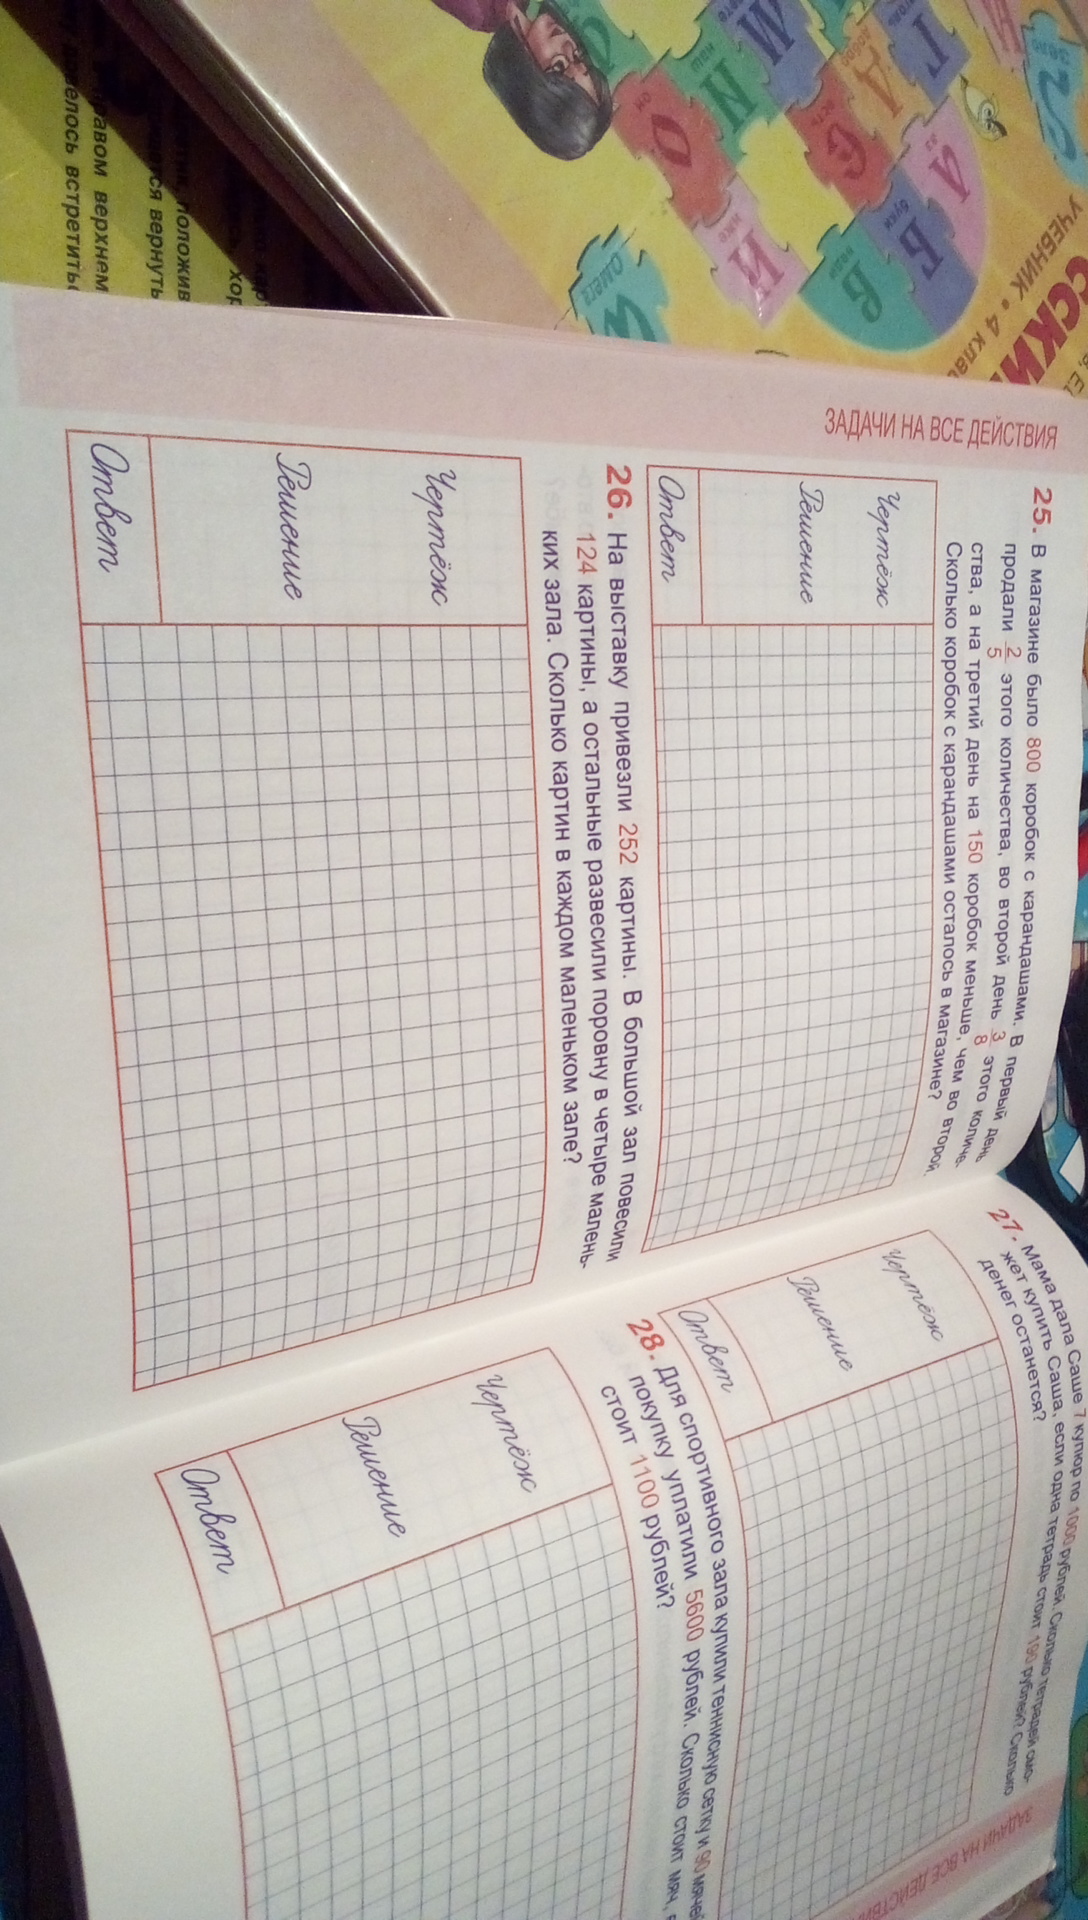 ЗАДАЧИ НА ВСЕ ДЕЙСТВИЯ
25. В магазине было 800 коробок с карандашами. В первый день
продали 2/5 этого количества, во второй день 3/8 этого количе-
ства, а на третий день на 150 коробок меньше, чем во второй.
Сколько коробок с карандашами осталось в магазине?
Чертёж
Решение
Ответ
26. На выставку привезли 252 картины. В большой зал повесили
124 картины, а остальные развесили поровну в четыре малень-
ких зала. Сколько картин в каждом маленьком зале?
Чертёж
Решение
Ответ
27. Мама дала Саше 7 купюр по 1000 рублей. Сколько тетрадей смо-
жет купить Саша, если одна тетрадь стоит 190 рублей? Сколько
денег останется?
Чертёж
Решение
Ответ
28. Для спортивного зала купили теннисную сетку и 90 мячей
покупку уплатили 5600 рублей. Сколько стоит мяч,
стоит 1100 рублей?
Чертёж
Решение
Ответ
ЗАДАЧИ НА ВСЕ ДЕЙСТВИ
УЧЕБНИК • 4 клас
А
аз
Б
буки
В
веди
Г
Д
добро
С
И
иже
Н
наш
О
он
М
Омега
положив
вернуть
правом верхнем
елось встретить